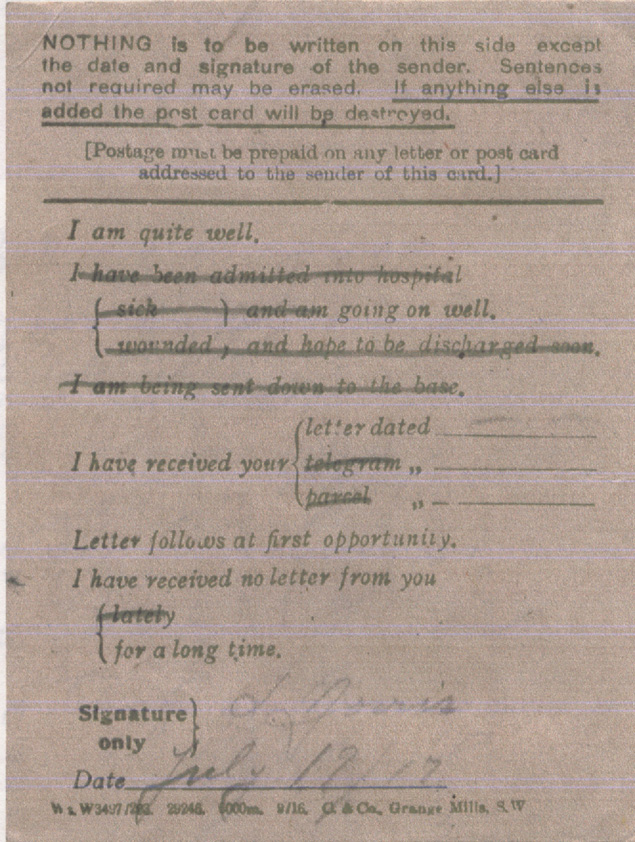 NOTHING is to be written on this side except
the date and signature of the sender. Sentences
not required may be erased. If anything else is
added the post card will be destroyed.
[Postage must be prepaid on any letter or post card
addressed to the sender of this card.]
I am quite well.
I have been admitted into hospital
sick } and am going on well.
wounded } and hope to be discharged soon.
I am being sent down to the base.
letter dated
I have received your telegram „
parcel „
Letter follows at first opportunity.
I have received no letter from you
lately
for a long time.
Signature
only
Date July 19/17
W s. W3497/293. 29246. 6000m. 9/16. C. & Co., Grange Mills, S.W